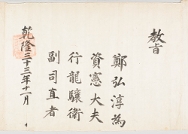 教旨
鄭弘淳為
資憲大夫
行龍驤衛
副司直者
乾隆三十三年十一月